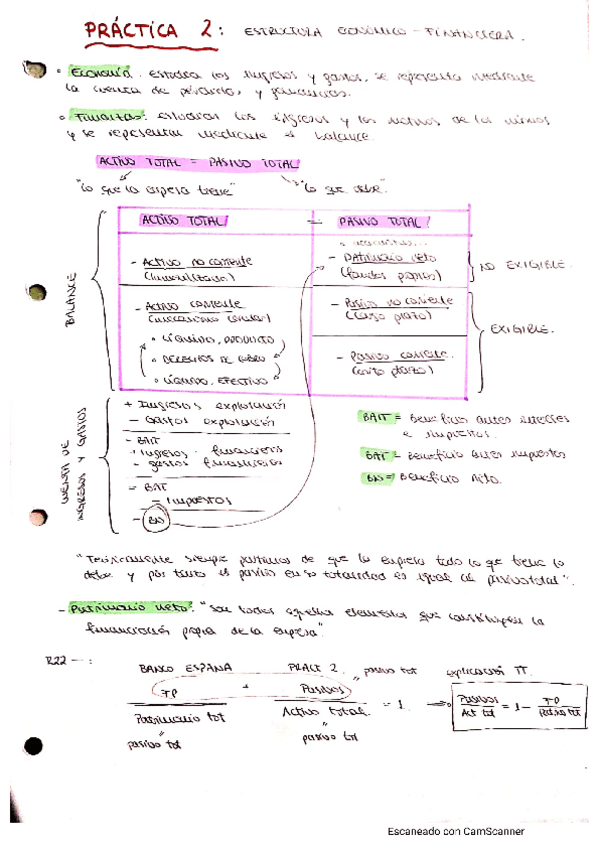 PRÁCTICA 2: ESTRUCTURA ECONÓMICO-FINANCIERA.
• Economía: estudia los ingresos y gastos, se representa mediante
la cuenta de pérdidas y ganancias.
• Finanzas: estudian los ingresos y los motivos de los mismos
y se representan mediante el balance.
ACTIVO TOTAL = PASIVO TOTAL
"lo que la empresa tiene" "lo que debe".
BALANCE
ACTIVO TOTAL = PASIVO TOTAL
- Activo no corriente
(inmovilizado)
- Activo corriente
• LÍQUIDO, PRODUCTO
• DERECHOS DE COBRO
• LÍQUIDO, EFECTIVO
- Patrimonio neto
(fondos propios)
NO EXIGIBLE.
- Pasivo no corriente
(largo plazo)
- Pasivo corriente.
(corto plazo)
EXIGIBLE.
CUENTA DE
INGRESOS Y GASTOS
+ Ingresos explotación
- Gastos explotación
- BAIT
+ ingresos financieros
- gastos financieros
= BAT
- Impuestos
- BN
BAIT = Beneficio antes intereses
e impuestos.
BAT = Beneficio antes impuestos
BN = Beneficio Neto.
"Teóricamente siempre partimos de que la empresa todo lo que tiene lo
debe y por tanto el pasivo en su totalidad es igual al
- Patrimonio neto: "son todos aquellos elementos que constituyen la
financiación propia de la empresa".
R22 - :
BANCO ESPAÑA PRACT 2. pasivo tot explicación π.
FP + Pasivos
Patrimonio tot Activo total. = 1
pasivo tot pasivo tot
Pasivos = 1 - FP
Act tot Pasivo tot
Escaneado con CamScanner